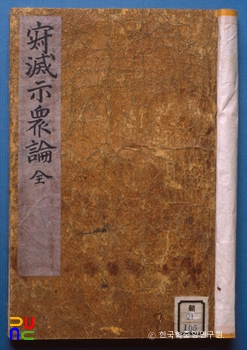 寂滅示衆論 全
105
© 한국학중앙연구원